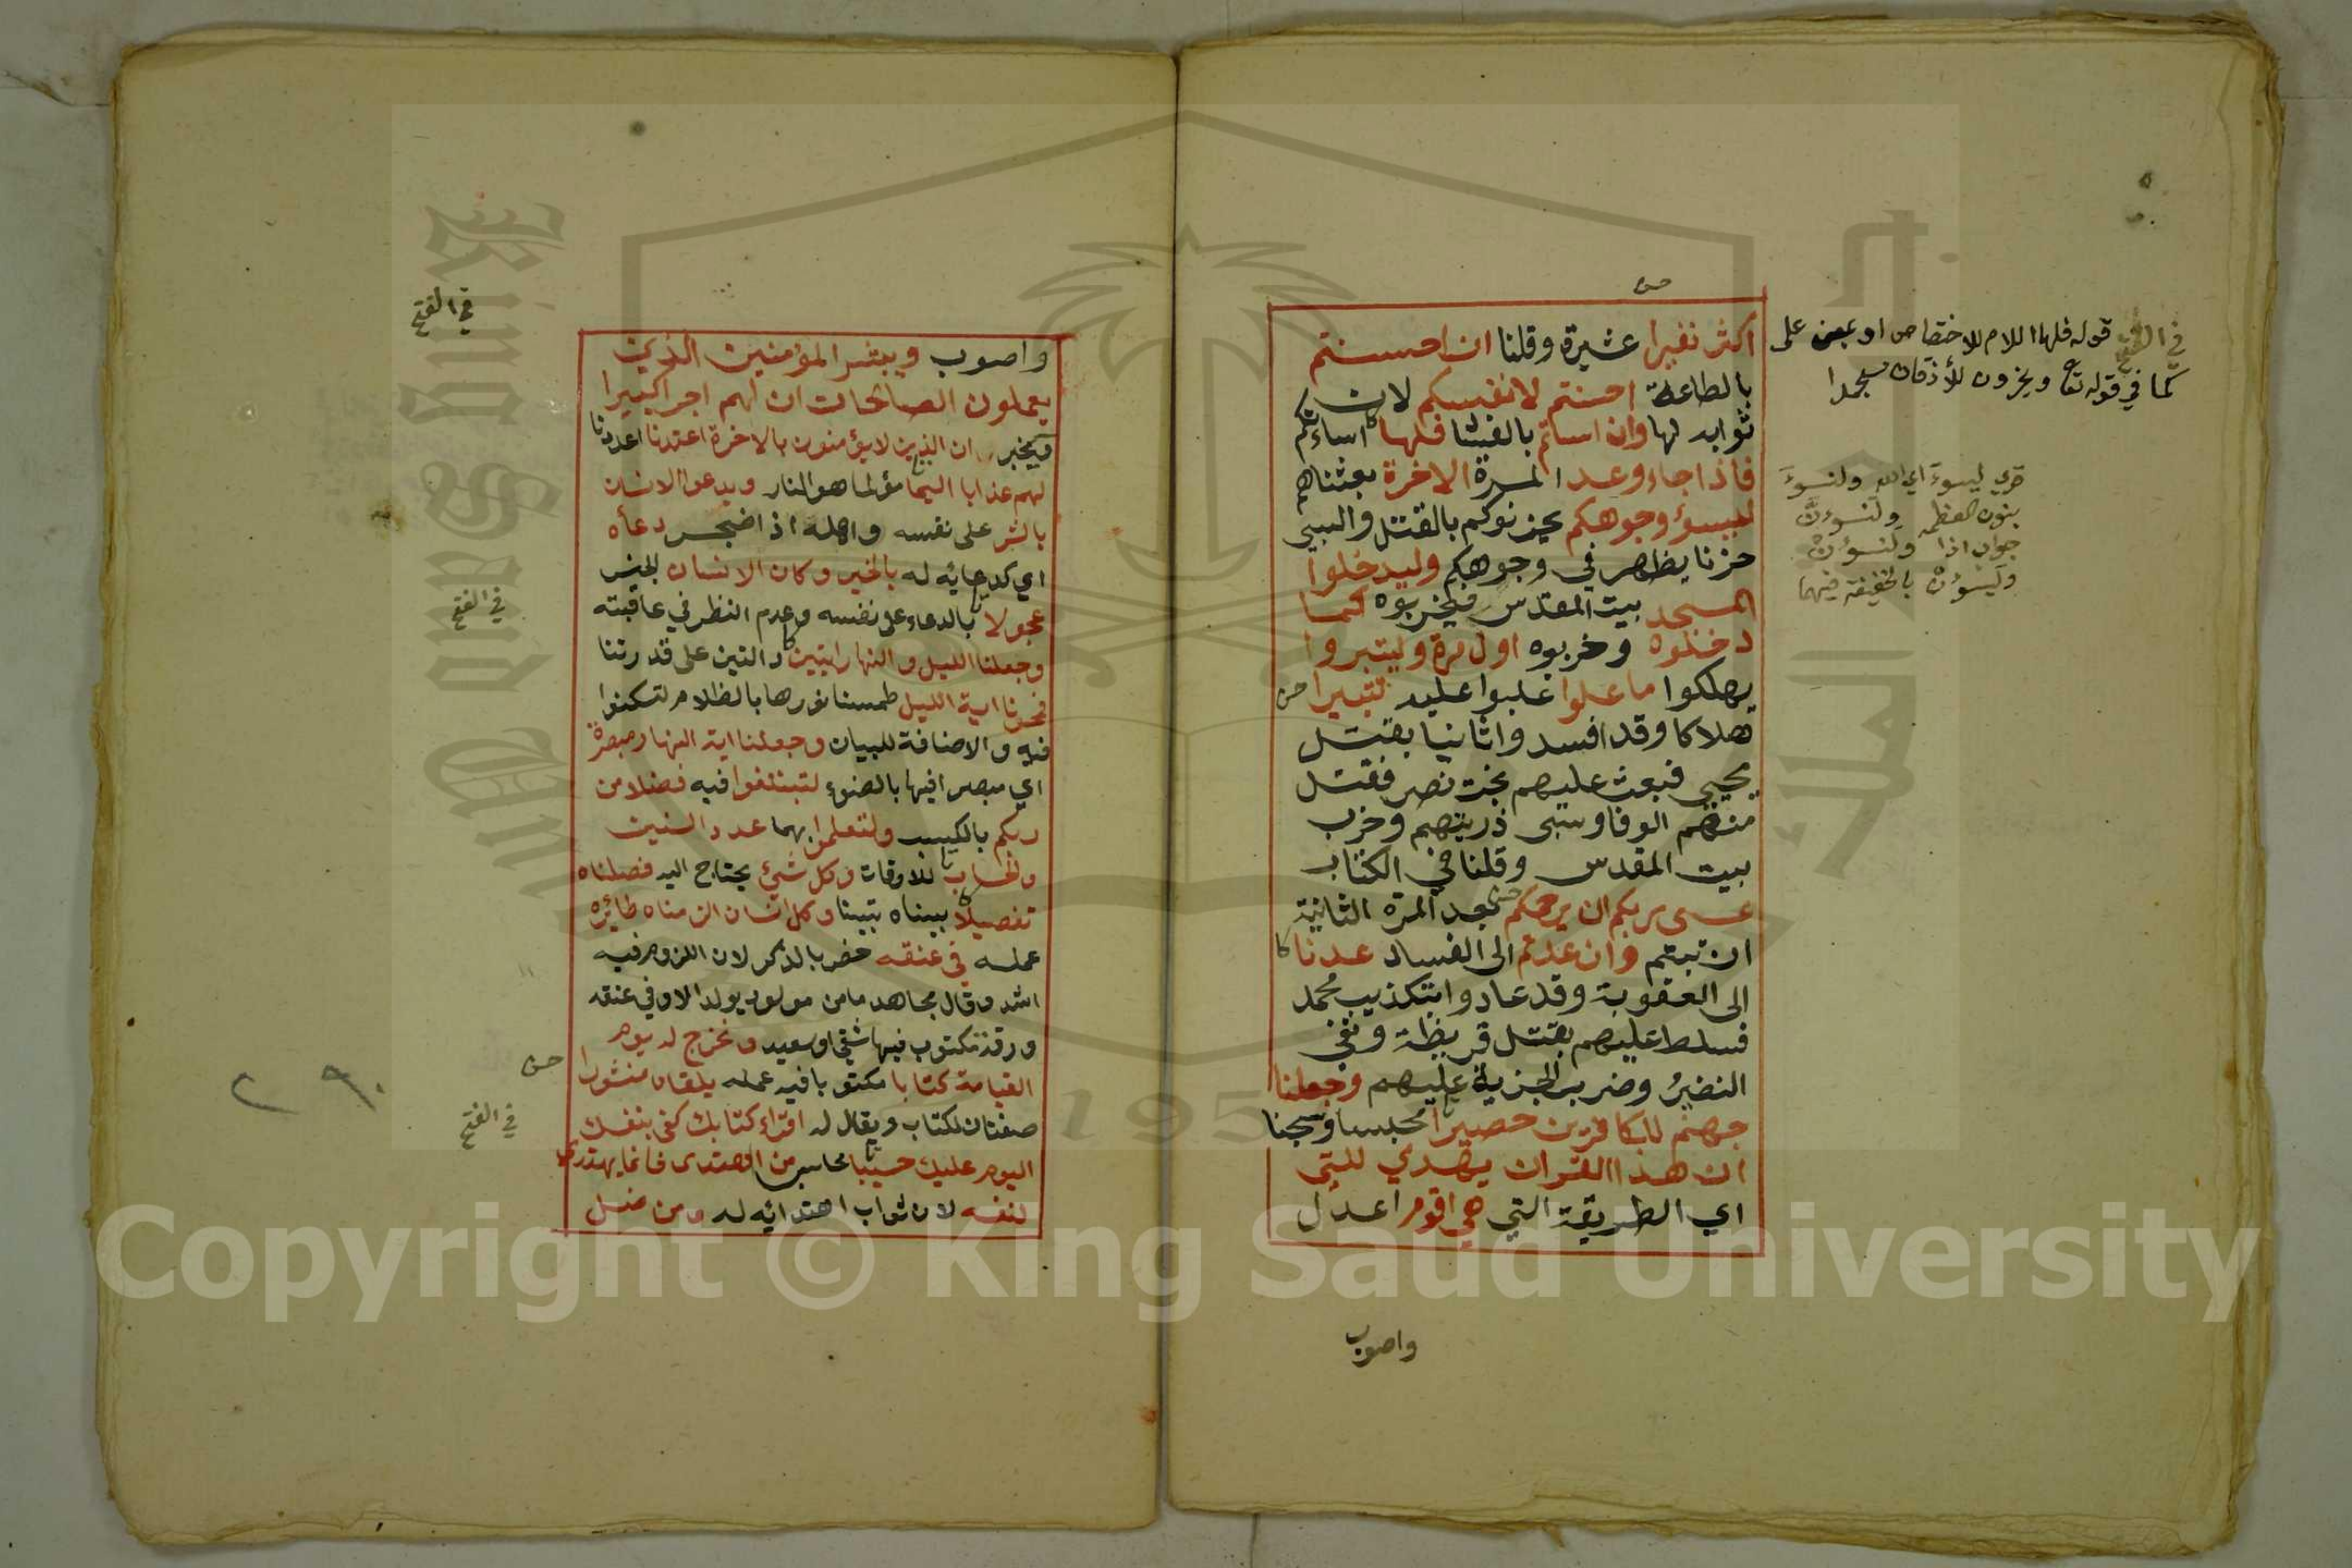 اكثر نفيرا عشيرة وقلنا ان احسنتم
بالطاعة احسنتم لانفسكم لان
ثوابه لها وان اساتم بالفساد فلها اساءتكم
فاذا جاء وعد المرة الاخرة بعثناهم
ليسؤ وجوهكم يحزنوكم بالقتل والسبي
حزنا يظهر في وجوهكم وليدخلوا
المسجد بيت المقدس فيخربوه كما
دخلوه وخربوه اول مرة وليتبروا
يهلكوا ما علوا غلبوا عليه تتبيرا
هلاكا وقد افسدوا ثانيا بقتل
يحيى فبعث عليهم بخت نصر فقتل
منهم الوفا وسبى ذريتهم وخرب
بيت المقدس وقلنا في الكتاب
عسى ربكم ان يرحمكم بعد المرة الثانية
ان تبتم وان عدتم الى الفساد عدنا
الى العقوبة وقد عادوا بتكذيب محمد
فسلط عليهم بقتل قريظة ونفي
النضير وضرب الجزية عليهم وجعلنا
جهنم للكافرين حصيرا محبسا وسجنا
ان هذا القران يهدي للتي
اي الطريقة التي هي اقوم اعدل
واصوب
في الفتح قوله فلها اللام للاختصاص او بمعنى على
كما في قوله تعا ويخرون للأذقان سجدا
قرئ ليسوءَ اي الله ولنسوءَ
بنون العظمة ولنسوءنَّ
جواب اذا ولنسوءنْ
وليسوءنْ بالخفيفة فيهما
واصوب ويبشر المؤمنين الذين
يعملون الصالحات ان لهم اجرا كبيرا
ويخبر ان الذين لا يؤمنون بالاخرة اعتدنا اعددنا
لهم عذابا اليما مؤلما هو النار ويدعوا الانسان
بالشر على نفسه واهله اذا ضجر دعاه
اي كدعائه له بالخير وكان الانسان الجنس
عجولا بالدعاء على نفسه وعدم النظر في عاقبته
وجعلنا الليل والنهار ايتين دالتين على قدرتنا
فمحونا اية الليل طمسنا نورها بالظلام لتسكنوا
فيه والاضافة للبيان وجعلنا اية النهار مبصرة
اي مبصرا فيها بالضوء لتبتغوا فيه فضلا من
ربكم بالكسب ولتعلموا بهما عدد السنين
والحساب للاوقات وكل شيئ يحتاج اليه فصلناه
تفصيلا بيناه تبيينا وكل انسان الزمناه طائره
عمله في عنقه خص بالذكر لان اللزوم فيه
اشد وقال مجاهد ما من مولود يولد الا وفي عنقه
ورقة مكتوب فيها شقي او سعيد ونخرج له يوم
القيامة كتابا مكتوبا فيه عمله يلقاه منشورا
صفتان لكتاب ويقال له اقراء كتابك كفى بنفسك
اليوم عليك حسيبا محاسبا من اهتدى فانما يهتدي
لنفسه لان ثواب اهتدائه له ومن ضل
في الفتح
في الفتح
في الفتح
Copyright © King Saud University